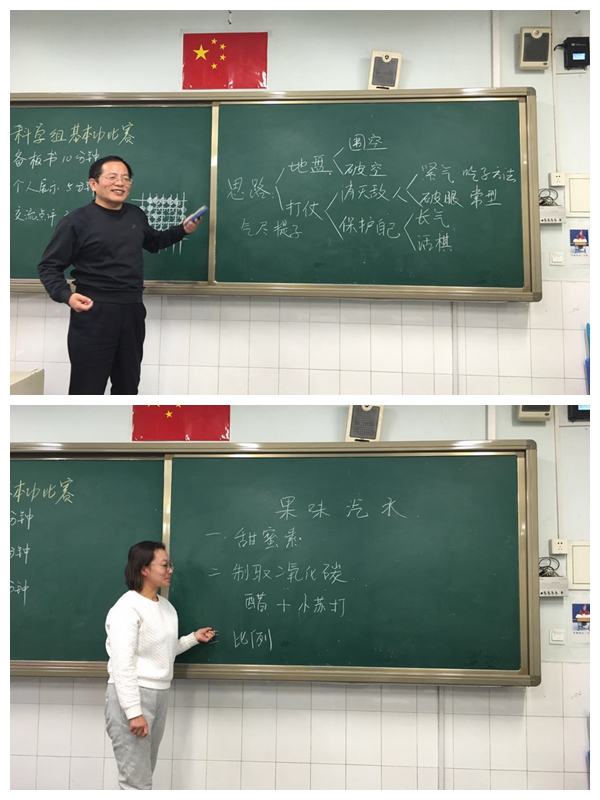 科学组基本功比赛
各板书10分钟
个人展示 5分钟
交流点评
思路
地盘
围空
破空
打仗
消灭敌人
紧气 吃子方法
破眼 常型
保护自己
长气
活棋
气尽提子
本功比赛
分钟
分钟
分钟
果味汽水
一. 甜蜜素
二 制取二氧化碳
醋 + 小苏打
三 比例